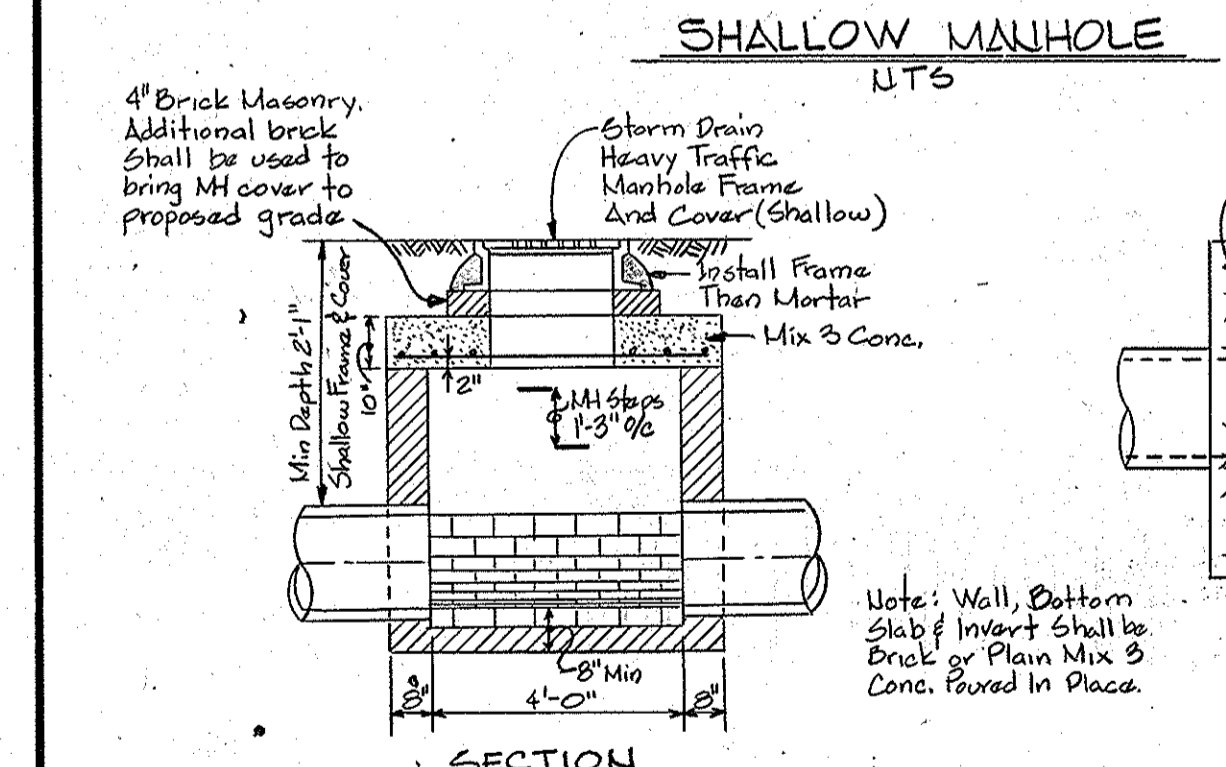 SHALLOW MANHOLE
NTS
4" Brick Masonry.
Additional brick
Shall be used to
bring MH cover to
proposed grade
Storm Drain
Heavy Traffic
Manhole Frame
And Cover (Shallow)
Install Frame
Then Mortar
Mix 3 Conc.
Min Depth 2'-1"
Shallow Frame & Cover
10"
2"
MH Steps
1'-3" o/c
8" Min
8"
4'-0"
8"
Note: Wall, Bottom
Slab & Invert Shall be
Brick or Plain Mix 3
Conc. Poured In Place.
SECTION